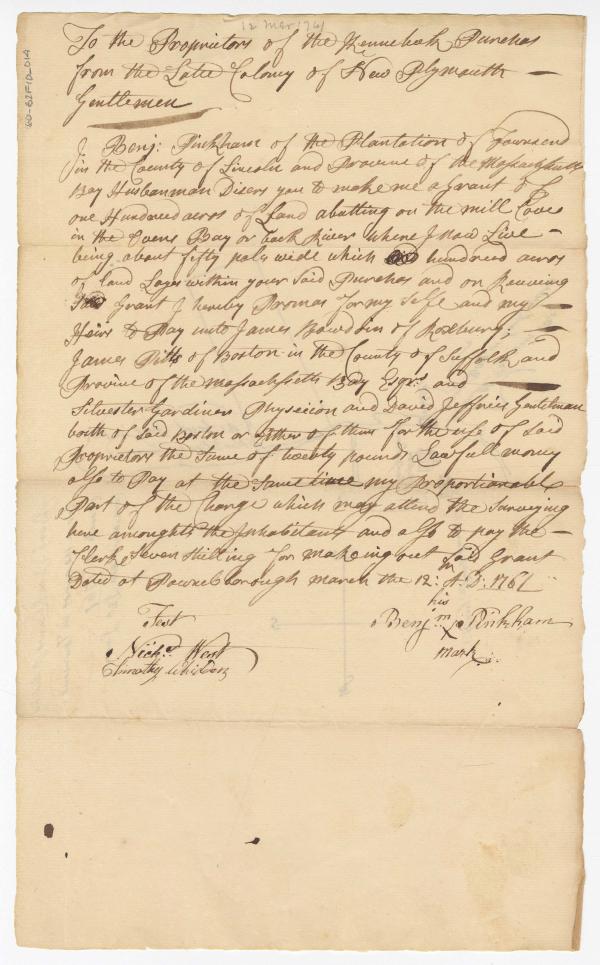 12 Mar 1761
60-62F10.014
To the Proprietors of the Kennebeck Purches
from the Late Colony of New Plymouth —
Gentlemen
I Benj: Pinkham of the Plantation of Townsend
in the County of Lincoln and Province of the Massachusetts
Bay Husbanman Disers you to make me a Grant of
one Hundred acres of Land abutting on the mill Cove
in the Ovens Bay or back River where I now Live —
being about fifty pols wide which hundred acres
of land Layes within your Said Purches and on Receiving
Said Grant I hereby Promas for my Selfe and my —
Heirs to Pay unto James Bowdoin of Roxbury; —
James Pitts of Boston in the County of Suffolk and
Province of the Massachsetts Bay Esqrs and —
Silvester Gardiner Physecion and David Jeffries Gentelman
both of Said Boston or Either of them for the use of Said
Proprietors the Sume of twenty pounds Lawfull money
also to Pay at the Same time my Proportionable
Part of the Charge which may attend the Surveying
here amonghts the Inhabitants and also to pay the —
Clerk Seven Shilling for makeing out Said Grant
Dated at Pownalborough march the 12: A:D: 1761
his
Test Benjm X Pinkham
mark
Nichs West
Timothy Whidden